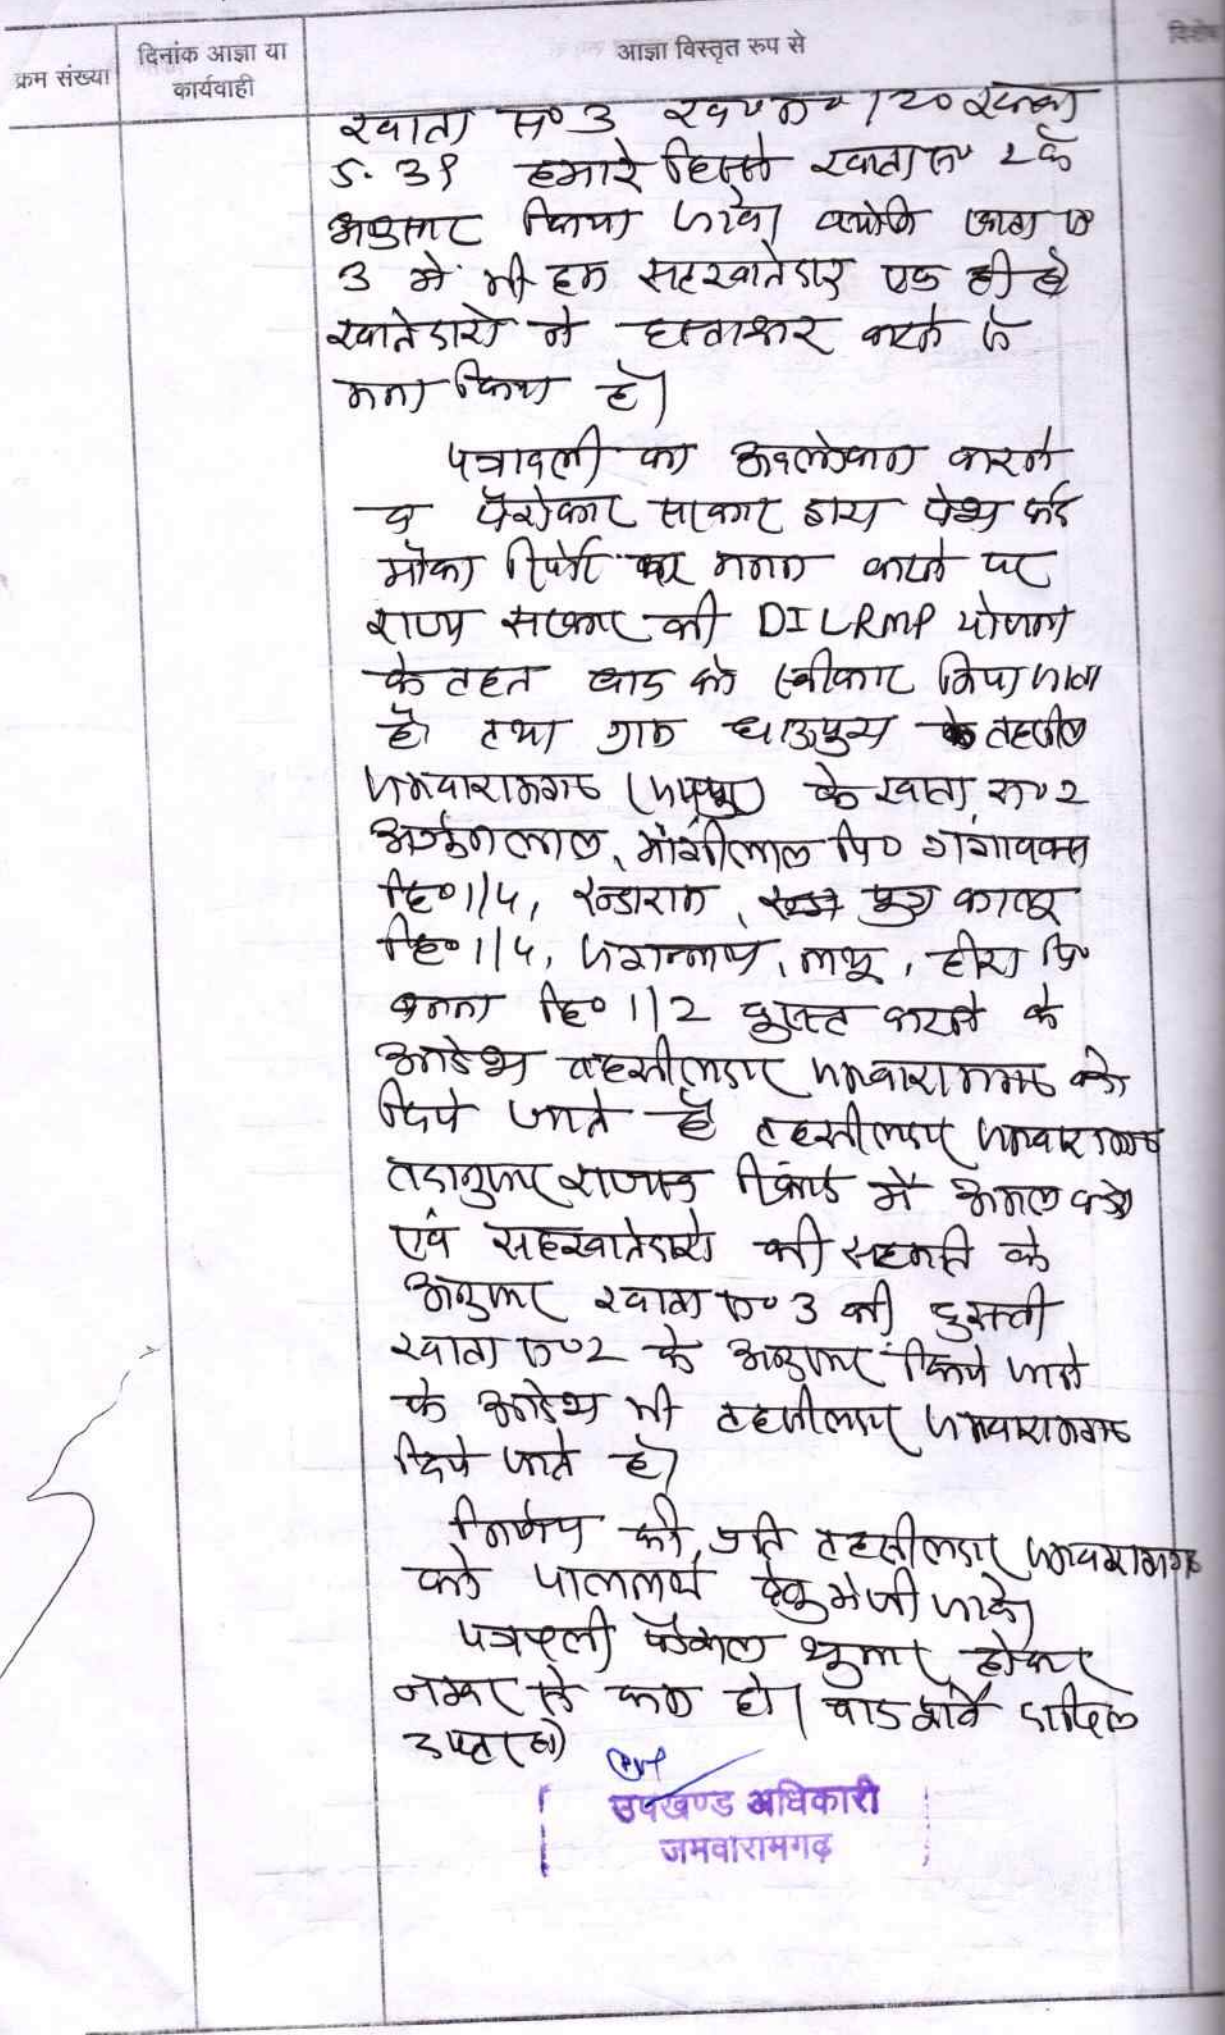 क्रम संख्या
दिनांक आज्ञा या
कार्यवाही
आज्ञा विस्तृत रुप से
खाता स० 3 120
5.39 हमारे हिस्से खाता स० 2 के
अनुसार किया जावे। क्योंकि खाता स०
3 में भी हम सहखातेदार एक ही है
खातेदारो ने हस्ताक्षर करने से
मना किया है।
पत्रावली का अवलोकन करने
व पैरोकार सरकार द्वारा पेश की गई
मौका रिपोर्ट का मनन करने पर
राज्य सरकार की DILRMP योजना
के तहत वाद को स्वीकार किया जाता
है तथा ग्राम तहसील
जमवारामगढ (जयपुर) के खाता स० 2
मांगीलाल पि० गंगाबक्स
हि० 1/4, पुत्र कालू
हि० 1/4, जगन्नाथ, लादू, हीरा पि०
हि० 1/2 दुरुस्त करने के
आदेश तहसीलदार जमवारामगढ को
दिये जाते है तहसीलदार जमवारामगढ
तदानुसार राजस्व रिकार्ड में अमल करे
एवं सहखातेदारो की सहमति के
अनुसार खाता स० 3 की दुरुस्ती
खाता स० 2 के अनुसार किये जाने
के आदेश भी तहसीलदार जमवारामगढ
दिये जाते है।
निर्णय की प्रति तहसीलदार जमवारामगढ
को पालनार्थ हेतु भेजी जावे।
पत्रावली फैसल शुमार होकर
नम्बर से कम हो। बाद दाखिल
दफ्तर हो
उपखण्ड अधिकारी
जमवारामगढ़